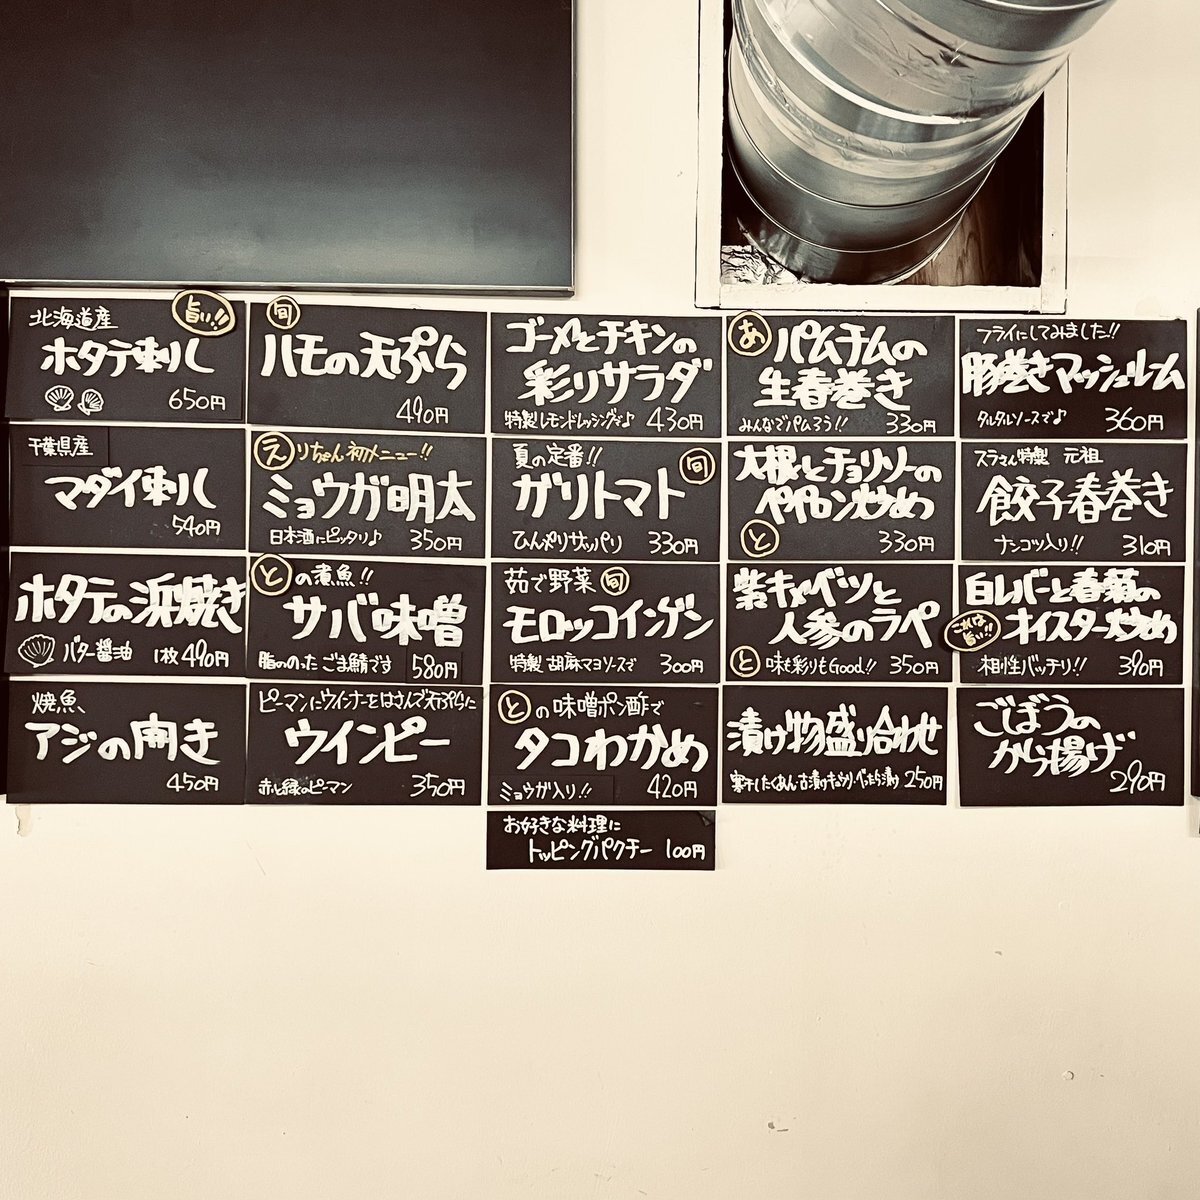 北海道産
旨い!!
ホタテ刺し
650円
旬
ハモの天ぷら
490円
ゴーヤとチキンの
彩りサラダ
特製レモンドレッシングで♪ 430円
あ パムチムの
生春巻き
みんなでパムろう!! 330円
フライにしてみました!!
豚巻きマッシュルーム
タルタルソースで♪ 360円
千葉県産
マダイ刺し
540円
えりちゃん初メニュー!!
ミョウガ明太
日本酒にピッタリ♪ 350円
夏の定番!! 旬
ガリトマト
ひんやりサッパリ 330円
大根とチョリソーの
ペペロン炒め
と 330円
スラさん特製 元祖
餃子春巻き
ナンコツ入り!! 310円
ホタテの浜焼き
バター醤油 1枚490円
との煮魚!!
サバ味噌
脂ののった ごま鯖です 580円
茹で野菜 旬
モロッコインゲン
特製 胡麻マヨソースで 300円
紫キャベツと
人参のラペ
と 味も彩りもGood!! 350円
白レバーと春菊の
これは旨い!! オイスター炒め
相性バッチリ!! 390円
焼魚、
アジの開き
450円
ピーマンにウインナーをはさんで天ぷらに
ウインピー
赤と緑のピーマン 350円
との味噌ポン酢で
タコわかめ
ミョウガ入り!! 420円
漬け物盛り合わせ
寒干したくあん・古漬けキュウリ・べったら漬け 250円
ごぼうの
から揚げ
290円
お好きな料理に
トッピングパクチー 100円